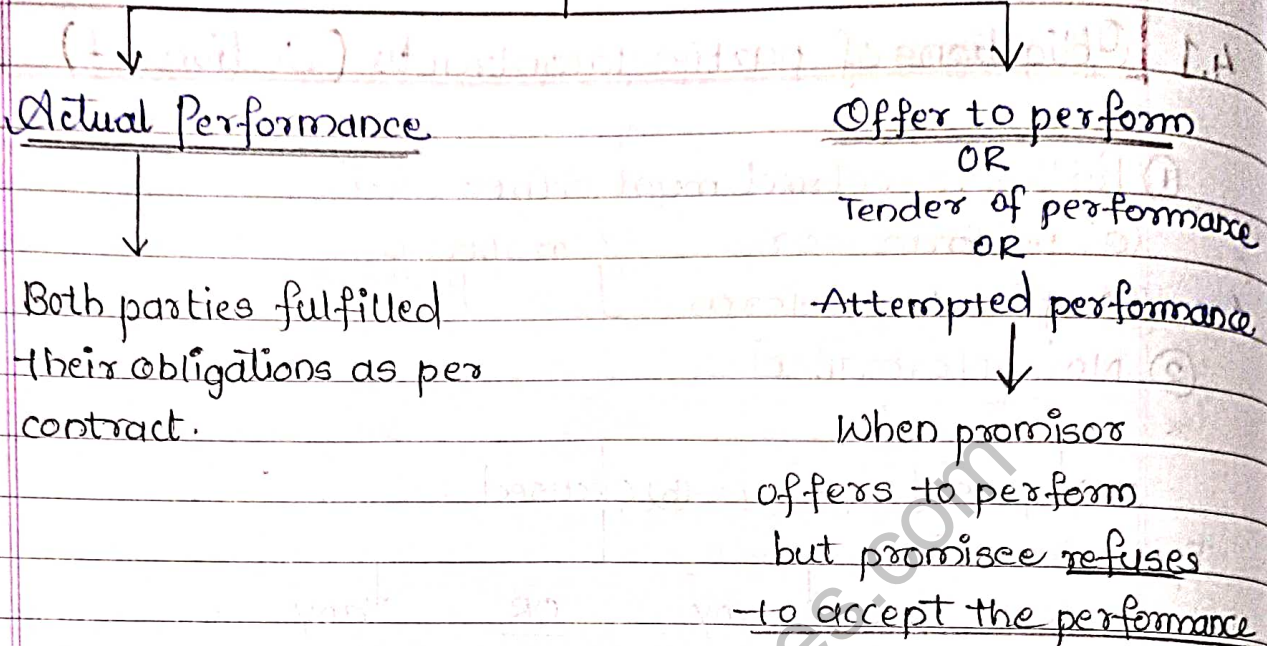 Actual Performance
Both parties fulfilled
their obligations as per
contract.
Offer to perform
OR
Tender of performance
OR
Attempted performance
When promisor
offers to perform
but promisee refuses
to accept the performance
4.1
es.com